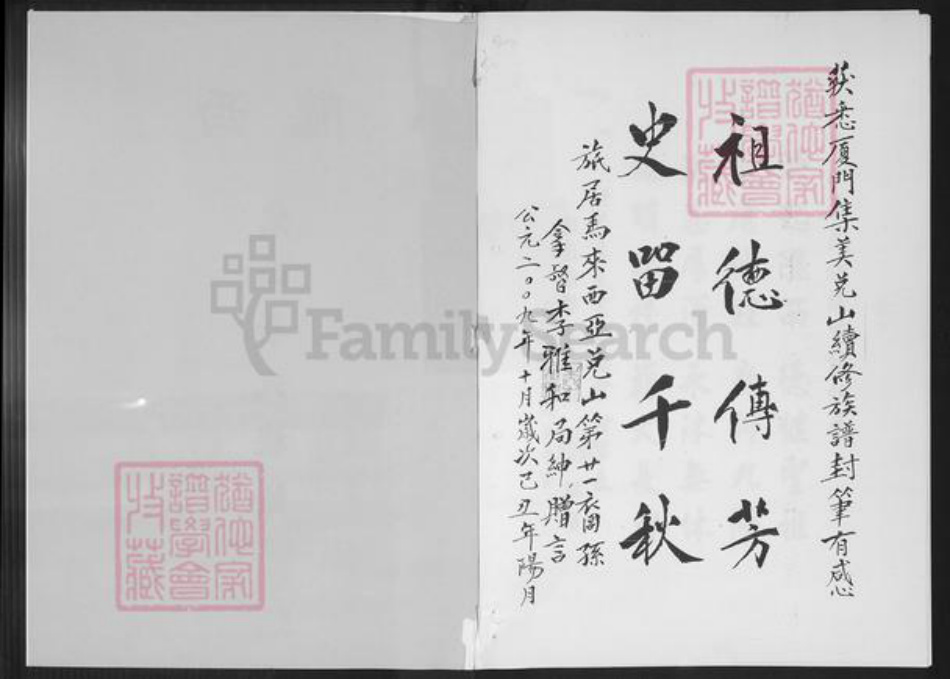 获悉厦門集美兑山續修族譜封筆有感
祖德傳芳
史留千秋
旅居馬來西亞兑山第廿一裔孫
拿督李雅和局紳贈言
公元二00九年十月歲次己丑年陽月
FamilySearch
譜學會
收藏
譜學會
收藏